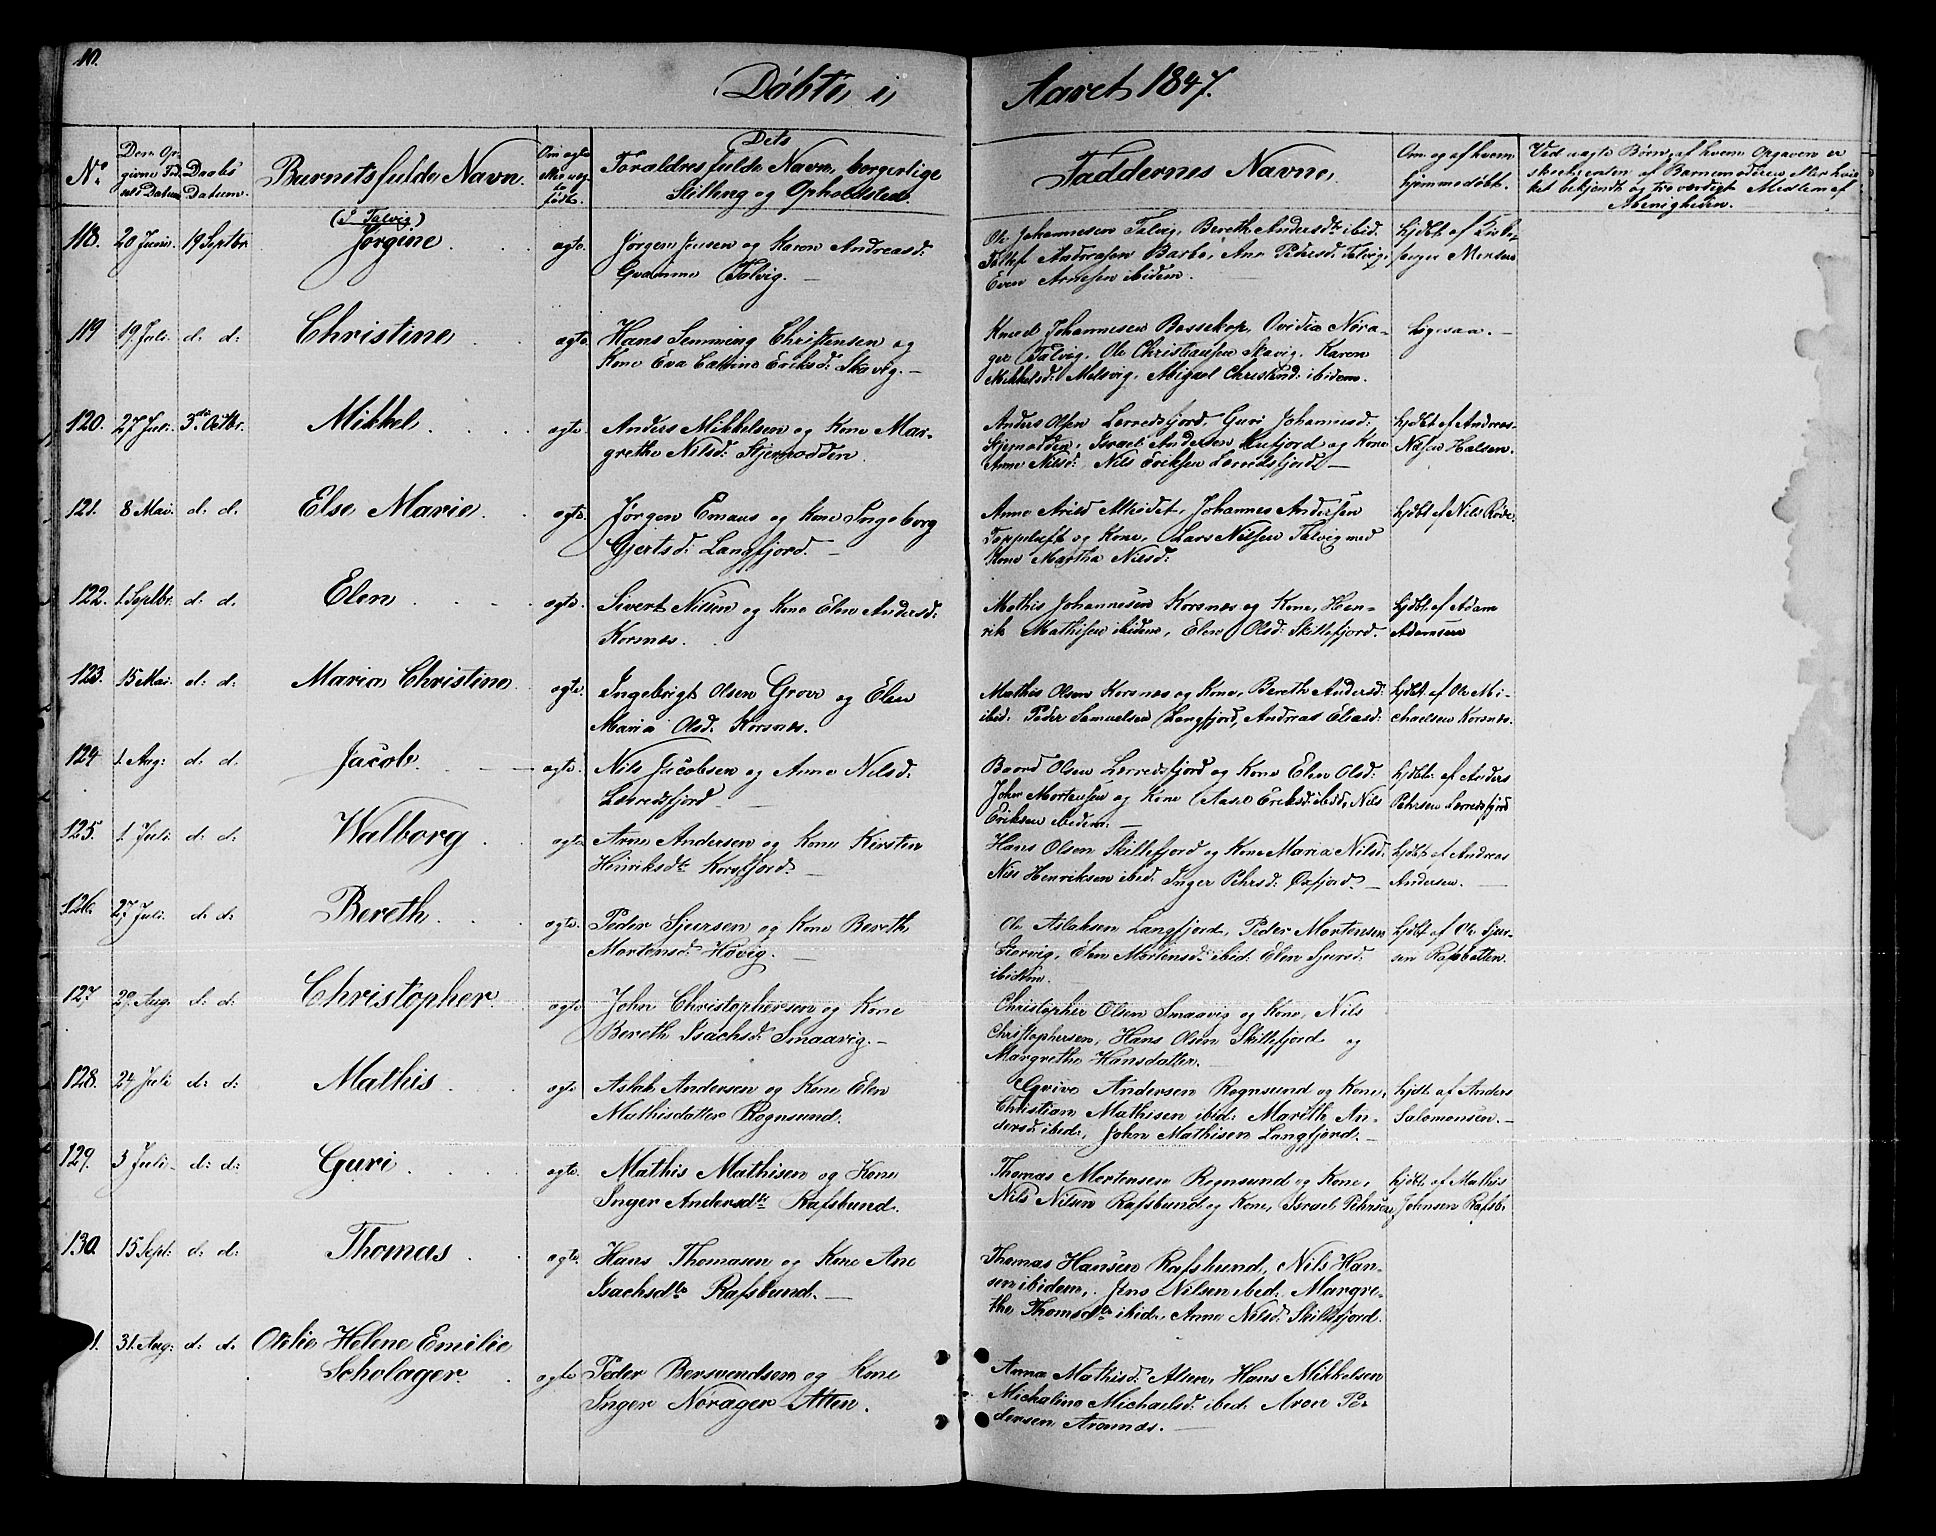 10.
Döbte i Aaret 1847.
No. Datum Daabs Datum. Barnets fulde Navn. Dets Forældres fulde Navn, borgerlige Stilling og Opholdsted. Faddernes Navne, Om og af hvem hjemmedøbt.
(I Talvig)
118. 20 Juni. 19 Septbr. Jørgine ægte. Jørgen Jensen og Karen Andreasd: Ole Johannesen Talvig, Bereth Andersdt. ibid. hjdbt. af
Talvig. Andreasen Ane Pedersd. Talvig,
Even Arnesen ibidem.
119 19 Juli. d: d: Christine ægte. Hans Hemming Christensen og Knud Johannesen Bossekop, Ovidia Nora- Ligesaa.
Kone Eva Cathrine Eriksd: Skavig. ger Talvig, Ole Christiansen Skavig, Karen
Mikkelsd: Melsvig, ibidem.
120. 27 Juli. 3die Octbr. Mikkel ægte. Anders Mikkelsen og Kone Mar- Anders Olsen Lerredsfjord, Guri Johannesd: hjdbt. af Andreas
grethe Nilsd: Stjernodden. Stjernodden, Israel Andersen og Kone Nilsen Halsen.
Anne Nilsd: Nils Eriksen Lerredsfjord
121. 8 Mai. d: d: Else Marie ægte. Jørgen Emaus og Kone Ingeborg Anne Johannes Andersen hjdbt. af Nils
Gjertsd: Langfjord. Toppeluft og Kone, Lars Nilsen Talvig med
Kone Martha Nilsd:
122. 1 Septbr. d: d: Elen ægte. Sivert Nilsen og Kone Elen Andersd: Mathis Johannesen Korsnes og Kone, Hen- hjdbt. af Adam
Korsnes. rik Mathisen ibidem, Elen Olsd: Skillefjord. Adamsen
123. 15 Mai. d: d: Maria Christine ægte. Ingebrigt Olsen Grove og Elen Mathis Olsen Korsnes og Kone, Bereth Andersd: hjdbt. af Ole Mi-
Maria Olsd. Korsnes. ibid. Peder Samuelsen Langfjord, Andreas Eliasd: chaelsen Korsnes.
124 1 Aug: d: d: Jacob ægte. Nils Jacobsen og Anne Nilsd: Baard Olsen Lerredsfjord og Kone Elen Olsd: hjdbt. af Anders
Lerredsfjord John Mortensen og Kone Eriksd: ibid, Nils Pehrsen Lerredsfjord
Eriksen ibidem:
125. 1 Juli d: d: Walborg ægte. Arne Andersen og Kone Kirsten Hans Olsen Skillefjord og Kone Maria Nilsd: hjdbt. af Andreas
Hinriksdt. Korsfjord. Nils Henriksen ibid: Inger Pehrsd: Oxfjord. Andersen.
126. 27 Juli. d: d: Bereth ægte. Peder Sjursen og Kone Bereth Ole Aslaksen Langfjord, Peder Mortensen hjdbt. af Ole Sjur-
Mortensd: Havig. Elen Mortensd: ibid: Elen Sjursd: sen Rafsbotten.
ibidem.
127 29 Aug: d: d: Christopher ægte. John Christophersen og Kone Christopher Olsen Smaavig og Kone, Nils
Bereth Isachsd: Smaavig. Christophersen, Hans Olsen Skillefjord og
Margrethe Hansdatter.
128. 24 Juli d: d: Mathis ægte. Aslak Andersen og Kone Elen Andersen Rognsund og Kone, hjdt. af Anders
Mathisdatter Rognsund. Christian Mathisen ibid: Mareth An- Salomonsen.
dersd: ibid:, John Mathisen Langfjord.
129. 3 Juli d: d: Guri ægte. Mathis Mathisen og Kone Thomas Mortensen Rognsund og Kone, hjdbt. af Mathis
Inger Andersdtr Rafsbund. Nils Nilsen Rafsbund og Kone, Israel Pehrsen, Johnsen Rafsb.
130. 15 Sept: d: d: Thomas ægte. Hans Thomasen og Kone Ane Thomas Hansen Rafsbund, Nils Han-
Isachsdtr Rafsbund. sen ibidem, Jens Nilsen ibid. Margre-
the Thomsdtr ibid., Anne Nilsd: Skillefjord.
1. 31. Aug: d: d: Otelie Helene Emilie
Scholager. ægte Peder Bersvendsen og Kone Anna Mathisd: Alten, Hans Mikkelsen
Inger Norager Alten. Michaline Michaelsd: ibid: Aron Pe-
dersen Aronnes.